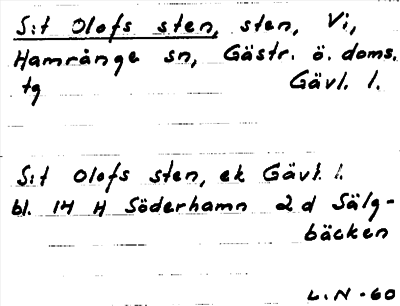 S:t Olofs sten, sten, Vi,
Hamrånge sn, Gästr. ö. doms.
tg Gävl. l.
S:t Olofs sten, ek Gävl. l.
bl. 14 H Söderhamn 2 d Sälg-
bäcken
L.N -60